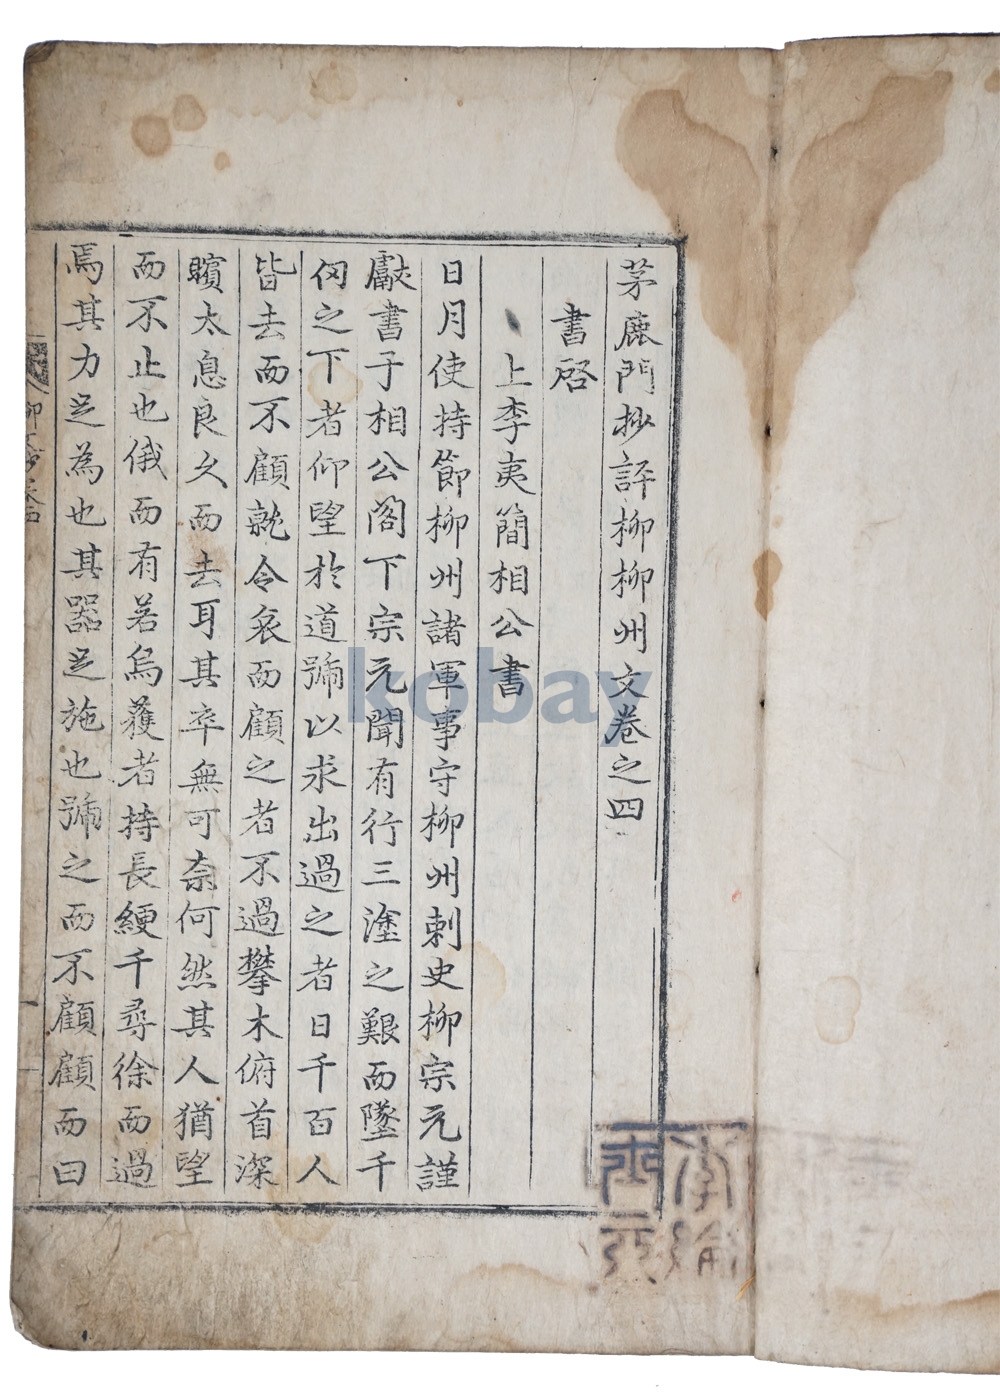 茅鹿門抄評柳柳州文卷之四
書啓
上李夷簡相公書
日月使持節柳州諸軍事守柳州刺史柳宗元謹
獻書于相公閣下宗元聞有行三塗之艱而墜千
仞之下者仰望於道號以求出過之者日千百人
皆去而不顧就令哀而顧之者不過攀木俯首深
矉太息良久而去耳其卒無可奈何然其人猶望
而不止也俄而有若烏獲者持長綆千尋徐而過
焉其力足為也其器足施也號之而不顧顧而曰
kobay